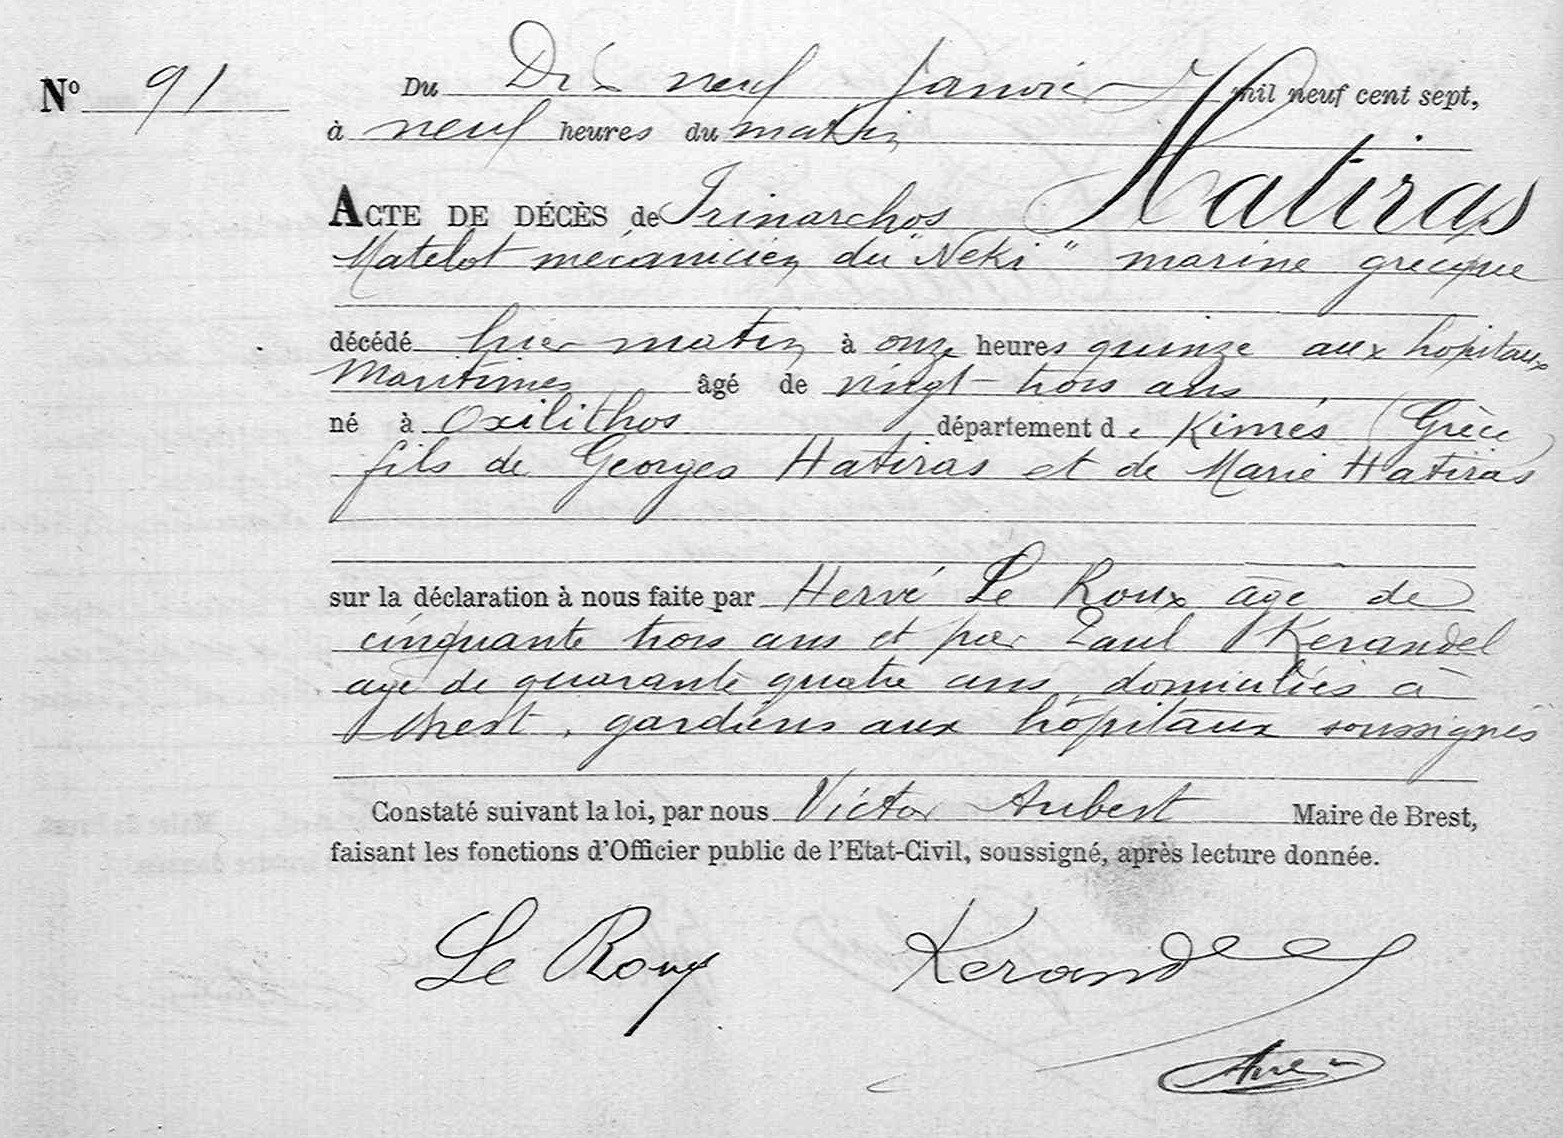 N° 91
Du Dix neuf Janvier mil neuf cent sept,
à neuf heures du matin
ACTE DE DÉCÈS de Irinarchos Hatiras
Matelot mécanicien du "Neki" marine grecque
décédé hier matin à onze heures quinze aux hopitaux
Maritimes âgé de vingt-trois ans
né à Oxilithos département de Kimès (Grèce)
fils de Georges Hatiras et de Marie Hatiras
sur la déclaration à nous faite par Hervé Le Roux agé de
cinquante trois ans et par Paul Kerandel
agé de quarante quatre ans, domiciliés à
Brest, gardiens aux hôpitaux soussignés
Constaté suivant la loi, par nous Victor Aubert Maire de Brest,
faisant les fonctions d'Officier public de l'Etat-Civil, soussigné, après lecture donnée.
Le Roux Kerandel